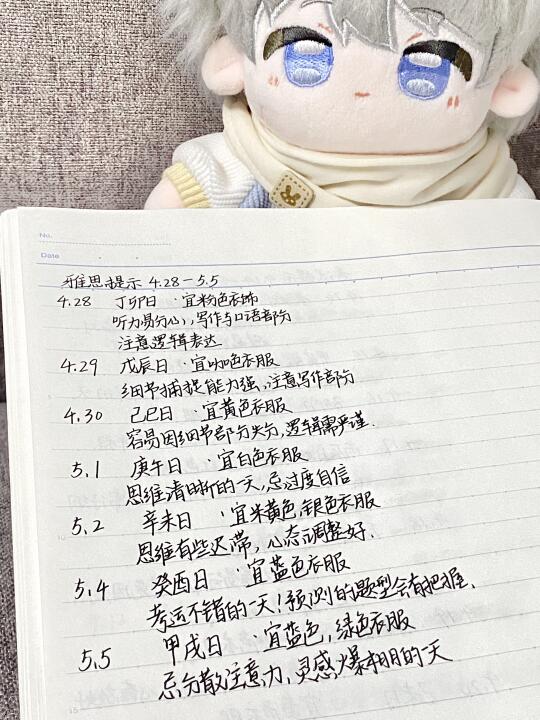 No.
Date
雅思提示 4.28-5.5
4.28 丁卯日 ·宜粉色衣饰
听力易分心，写作与口语部分
注意逻辑表达
4.29 戊辰日 ·宜咖色衣服
细节捕捉能力强，注意写作部分
4.30 己巳日 ·宜黄色衣服
容易因细节部分失分，逻辑需严谨.
5.1 庚午日 ·宜白色衣服
思维清晰的一天，忌过度自信
5.2 辛未日 ·宜米黄色，银色衣服
思维有些迟滞，心态调整好.
5.4 癸酉日 ·宜蓝色衣服
考运不错的一天！预测的题型会有把握.
5.5 甲戌日 ·宜蓝色，绿色衣服
忌分散注意力，灵感爆棚的一天